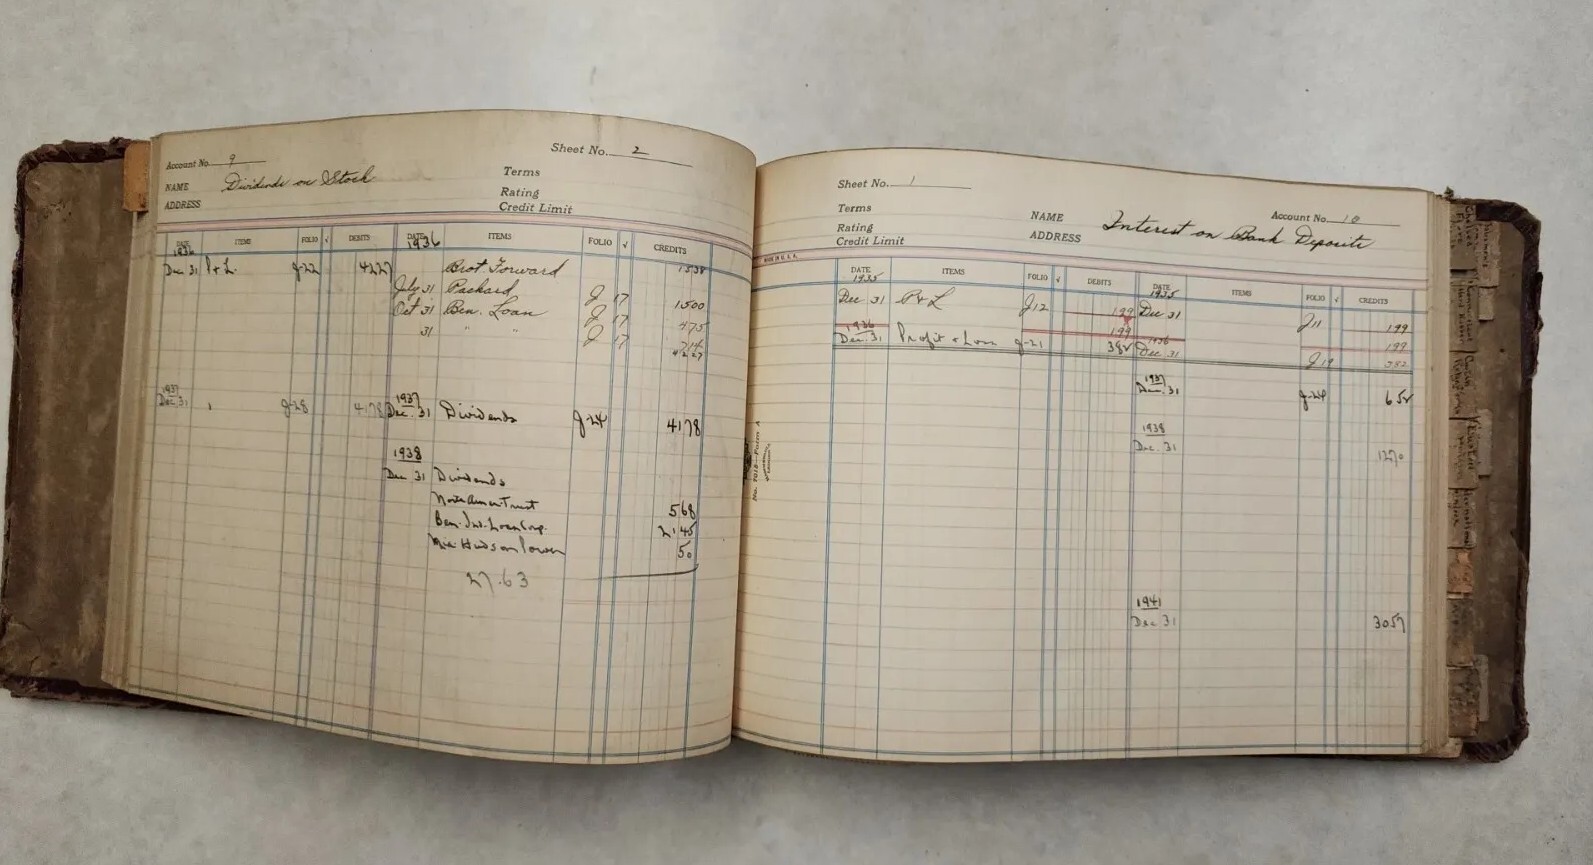 Account No. 9
Sheet No. 2
NAME Dividends on Stock
Terms
ADDRESS
Rating
Credit Limit
DATE ITEMS FOLIO √ DEBITS DATE ITEMS FOLIO √ CREDITS
1936 1936
Dec 31 P & L. J-22 4227 Brot Forward 1538
July 31 Packard J 17 1500
Oct 31 Ben. Loan J 17 475
31 " " J 17 714
4227
1937 1937
Dec 31 J-28 4178 Dec. 31 Dividends J-24 4178
1938
Dec 31 Dividends
North Amer. Trust 568
Ben. Ind. Loan Corp. 2145
Hudson Power 50
27.63
Sheet No. 1
Account No. 10
Terms
NAME Interest on Bank Deposits
Rating
ADDRESS
Credit Limit
MADE IN U.S.A.
DATE ITEMS FOLIO √ DEBITS DATE ITEMS FOLIO √ CREDITS
1935 1935
Dec 31 P & L J12 199 Dec 31 J11 199
199 199
1936 1936
Dec. 31 Profit & Loss J-21 382 Dec. 31 J 19 382
1937
Dec. 31 J-24 652
1938
Dec. 31 1270
1941
Dec 31 3057